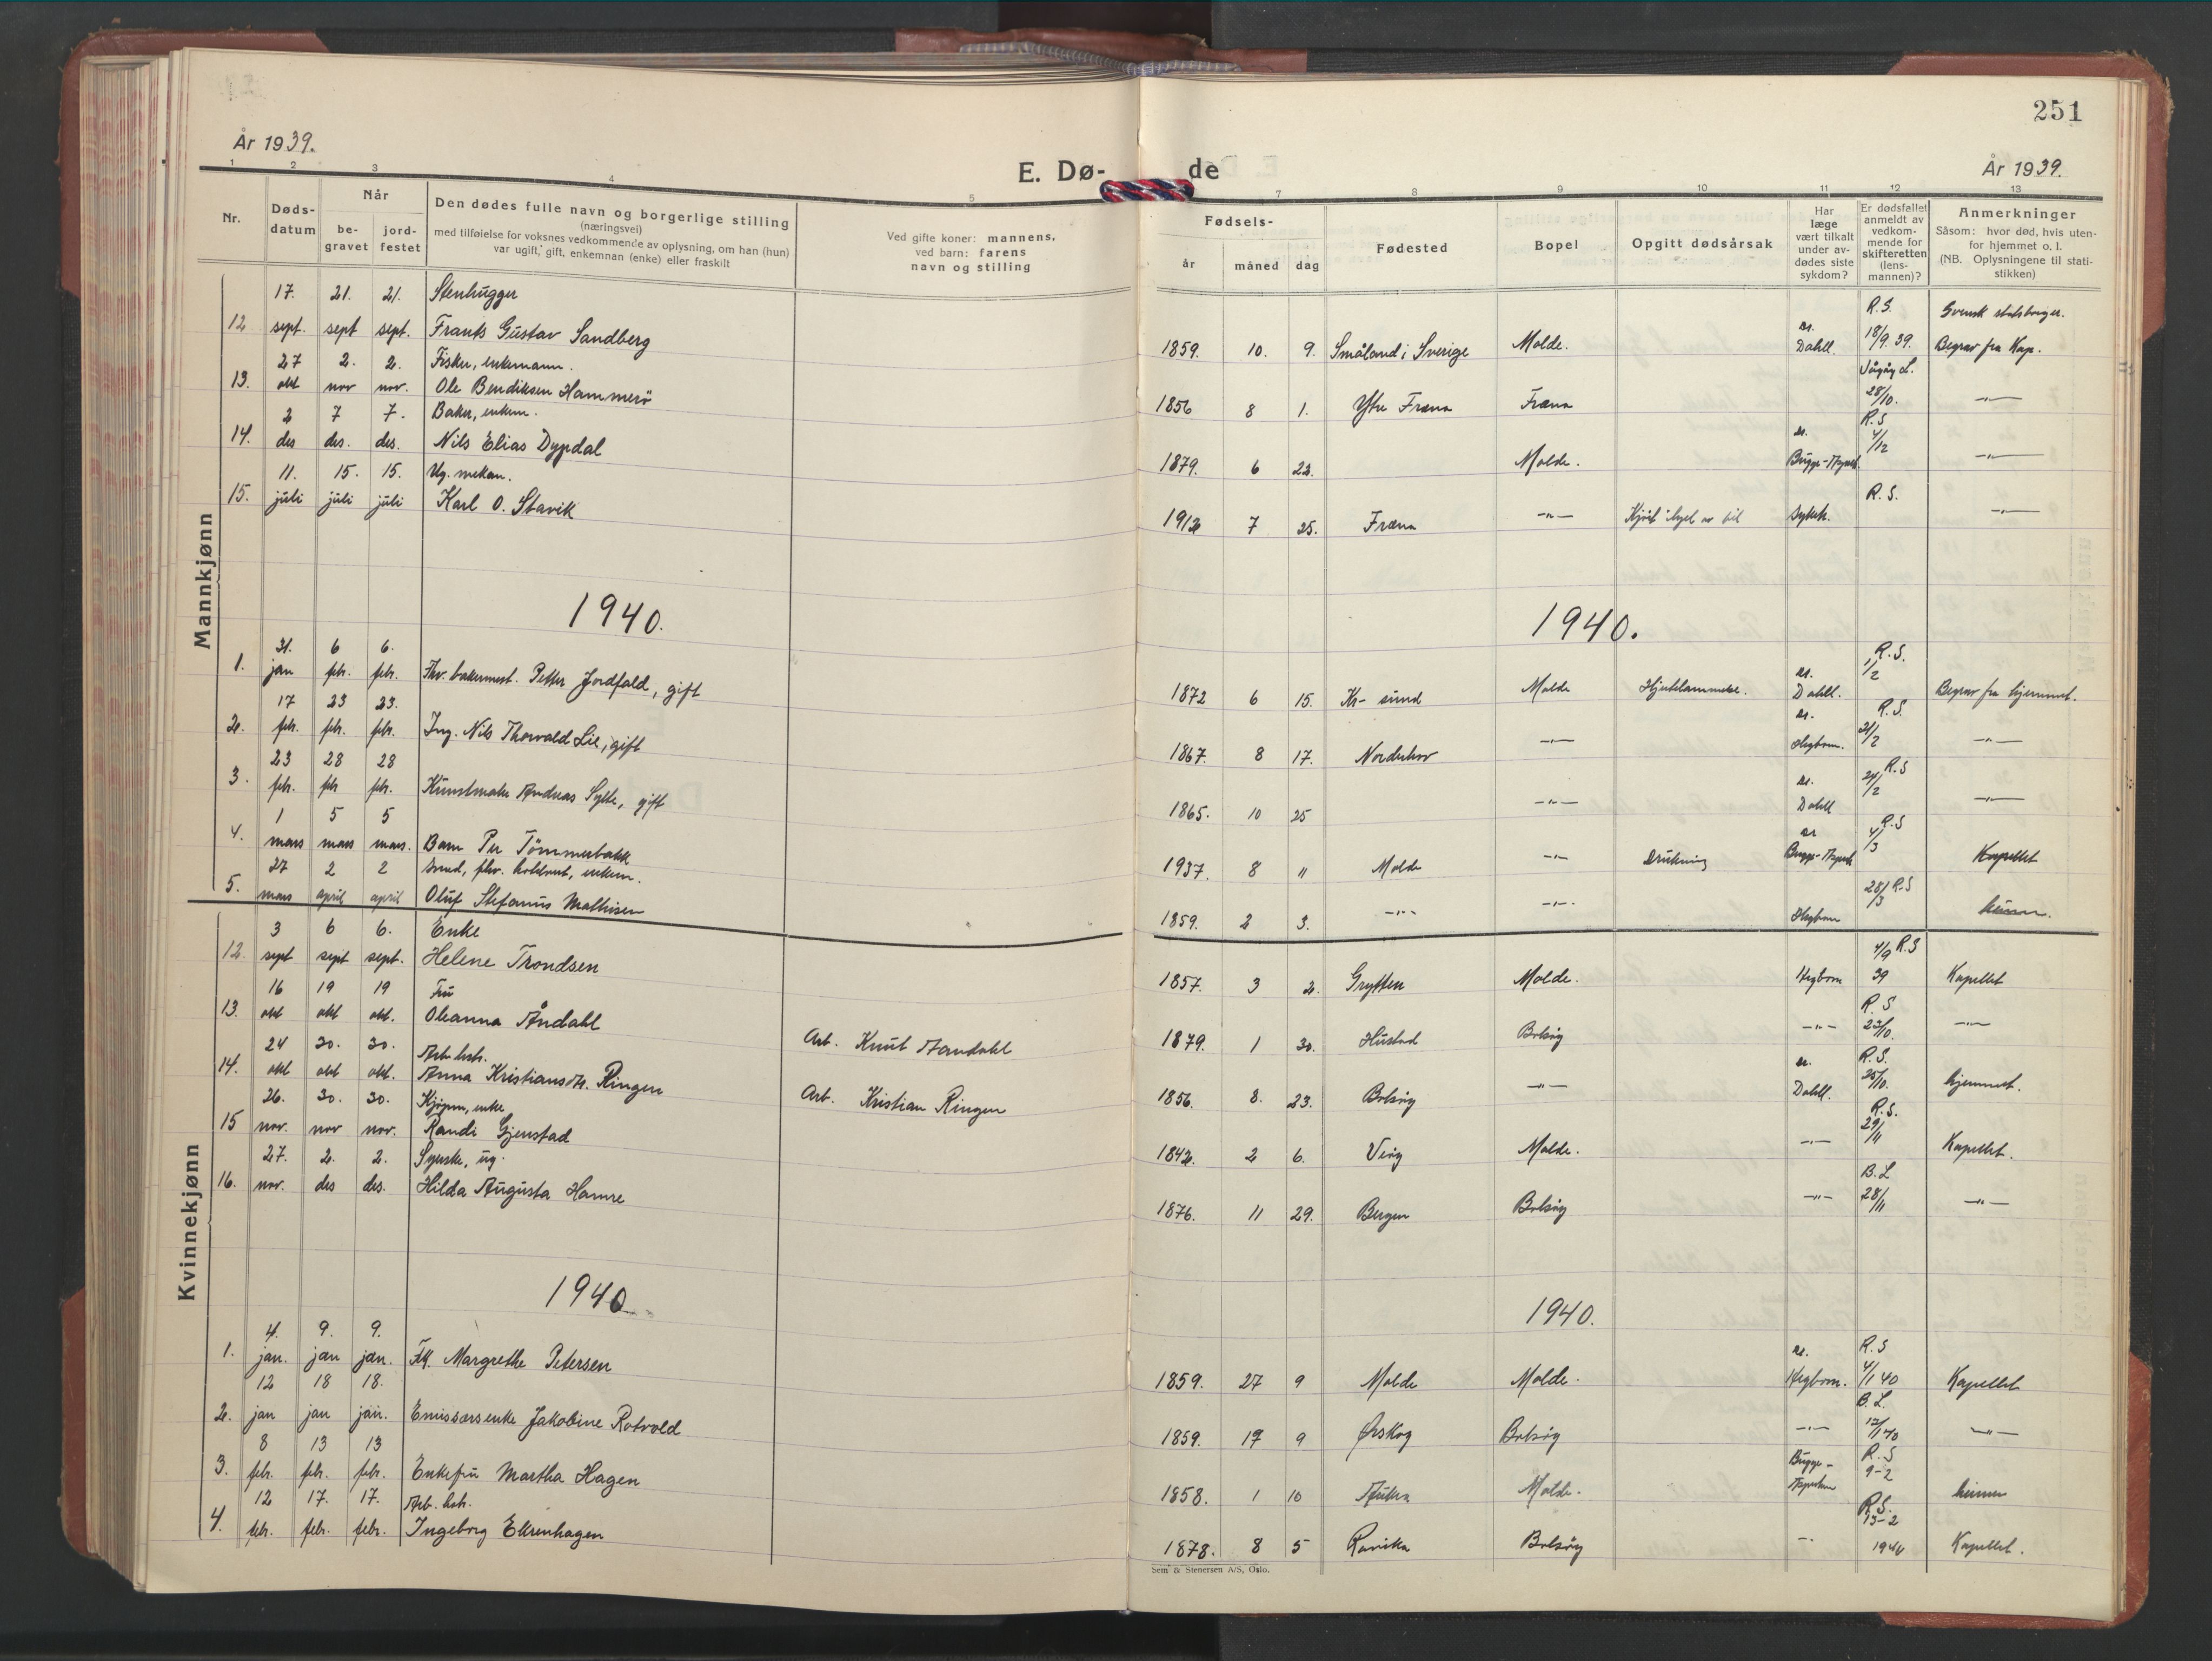 251
År 1939.
E. Dø-
de
År 1939.
1 2 3 4 5 7 8 9 10 11 12 13
Nr.
Døds-
datum
Når
be-
gravet
jord-
festet
Den dødes fulle navn og borgerlige stilling
(næringsvei)
med tilføielse for voksnes vedkommende av oplysning, om han (hun)
var ugift, gift, enkemnan (enke) eller fraskilt
Ved gifte koner: mannens,
ved barn: farens
navn og stilling
Fødsels-
år måned dag
Fødested
Bopel
Opgitt dødsårsak
Har
læge
vært tilkalt
under av-
dødes siste
sykdom?
Er dødsfallet
anmeldt av
vedkom-
mende for
skifteretten
(lens-
mannen)?
Anmerkninger
Såsom: hvor død, hvis uten-
for hjemmet o. l.
(NB. Oplysningene til stati-
stikken)
Mannkjønn
17. 21. 21. Stenhugger R.S. Svensk statsborger.
12 sept. sept sept. Frants Gustav Sandberg 1859. 10. 9. Småland i Sverige Molde. Dr. Dahll. 18/9. 39. Begrav fra Kap.
27 2. 2. Fisker, enkemann.
13. okt nov nov. Ole Bendiksen Hammerö 1856 8 1. Ytre Fræna Fræna 28/10. —„—
2 7 7. Baker, enkem. R.S
14. des des. des. Nils Elias Dypdal 1879. 6 22. Molde. Dr. 4/12 —„—
11. 15. 15. Ug. mekan. R.S.
15. juli juli juli Karl O. Stavik 1912 7 25. Fræna —„— Kjört ihjel av bil Sykeh. —„—
1940.
1940.
31. 6 6. R.S.
1. jan febr. febr. Fhv. bakermest. Petter Jordfald, gift 1872 6 15. Kr-sund Molde Hjertelammelse. Dr. Dahll. 1/2 Begrav fra hjemmet.
17 23 23. R.S.
2. febr. febr. febr. Ing. Nils Thorvald Lie, gift 1867. 8 17. Norderhov —„— Dr. Hegbom. 21/2 —„—
23 28 28 R.S
3. febr. febr febr. Kunstmaler Andreas Sylte, gift 1865. 10 25 —„— Dr. Dahll 24/2 —„—
1 5 5 R.S
4. mars mars mars. Barn Per Tömmerbakk 1937. 8 11 Molde —„— Drukning Dr 4/3 Kapellet
27 2 2 enkem.
5. mars april april Oluf Stefanus Mathisen 1859. 2 3. —„— —„— Hegbom 28/3 R.S
Kvinnekjønn
3 6 6. Enke
12. sept sept sept. Helene Trondsen 1857. 3 2. Grytten Molde. Hegbom 4/9 R.S 39 Kapellet
16 19 19 Fru R.S.
13. okt okt okt. Oleanna Åndahl Arb. Knut Aandahl 1879. 1 30. Hustad Bolsöy —„— 23/10. —„—
24 30. 30. Arb. hstr. R.S.
14. okt okt okt. Anna Kristiansdtr. Ringen Arb. Kristian Ringen 1856. 8. 23. Bolsöy —„— Dr. Dahll. 25/10. hjemmet.
26. 30. 30. enke R.S.
15 nov. nov nov. Randi Gjenstad 1842. 2 6. Veöy Molde. —„— 29/11 Kapellet.
27. 2. 2. Syerske, ug. B.L
16. nov. des des. Hilda Augusta Hamre 1876. 11 29. Bergen Bolsöy —„— 28/11 —„—
1940
1940.
4. 9. 9. R.S
1. jan. jan jan. Frk. Margrethe Petersen 1859. 27 9 Molde Molde. Dr. Hegbom. 4/1 40 Kapellet
12 18 18. B.L.
2. jan jan jan. Emissærsenke Jakobine Rotvold 1859. 17 9 Ørskog Bolsöy —„— 12/1 40 —„—
8 13 13 R.S
3. febr. febr. febr. Enkefru Martha Hagen 1858. 1 10 Aukra Molde. Bugge- 9-2
12 17. 17. Arb. hstr. R.S.
4. febr. febr. febr. Ingeborg Ekrenhagen 1878. 8 5 Rovika Bolsöy —„— 13-2 1940 Kapellet.
Sem & Stenersen A/S, Oslo.